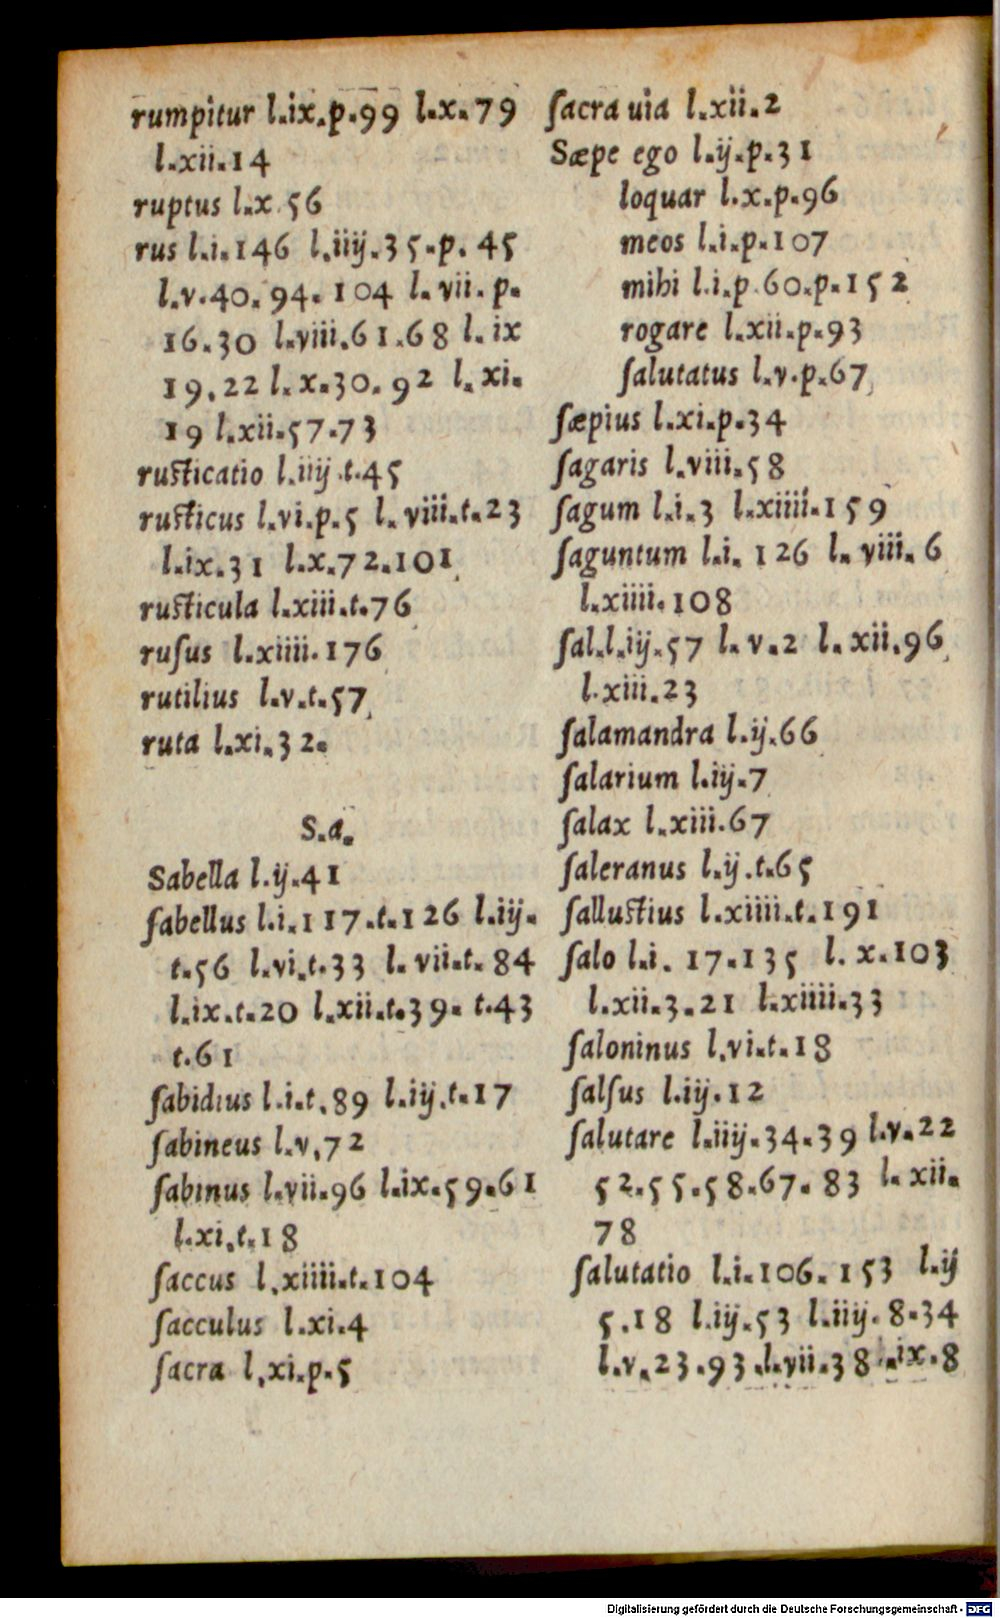 rumpitur l.ix.p.99 l.x.79
l.xii.14
ruptus l.x.56
rus l.i.146 l.iiij.35.p.45
l.v.40.94.104 l.vii.p.
16.30 l.viii.61.68 l.ix
19.22 l.x.30.92 l.xi.
19 l.xii.57.73
rusticatio l.iiij.t.45
rusticus l.vi.p.5 l.viii.t.23
l.ix.31 l.x.72.101
rusticula l.xiii.t.76
ruſus l.xiiii.176
rutilius l.v.t.57
ruta l.xi.32.
S.a.
Sabella l.ij.41
ſabellus l.i.117.t.126 l.iij.
t.56 l.vi.t.33 l.vii.t.84
l.ix.t.20 l.xii.t.39.t.43
t.61
ſabidius l.i.t.89 l.iij.t.17
ſabineus l.v.72
ſabinus l.vii.96 l.ix.59.61
l.xi.t.18
ſaccus l.xiiii.t.104
ſacculus l.xi.4
ſacra l.xi.p.5
ſacra uia l.xii.2
Sæpe ego l.ij.p.31
loquar l.x.p.96
meos l.i.p.107
mihi l.i.p.60.p.152
rogare l.xii.p.93
ſalutatus l.v.p.67
ſæpius l.xi.p.34
ſagaris l.viii.58
ſagum l.i.3 l.xiiii.159
ſaguntum l.i.126 l.viii.6
l.xiiii.108
ſal.l.iij.57 l.v.2 l.xii.96
l.xiii.23
ſalamandra l.ij.66
ſalarium l.iij.7
ſalax l.xiii.67
ſaleranus l.ij.t.65
ſallustius l.xiiii.t.191
ſalo l.i.17.135 l.x.103
l.xii.3.21 l.xiiii.33
ſaloninus l.vi.t.18
ſalſus l.iij.12
ſalutare l.iiij.34.39 l.v.22
52.55.58.67.83 l.xii.
78
ſalutatio l.i.106.153 l.ij
5.18 l.iij.53 l.iiij.8.34
l.v.23.93.l.vii.38.ix.8
Digitalisierung gefördert durch die Deutsche Forschungsgemeinschaft - DFG